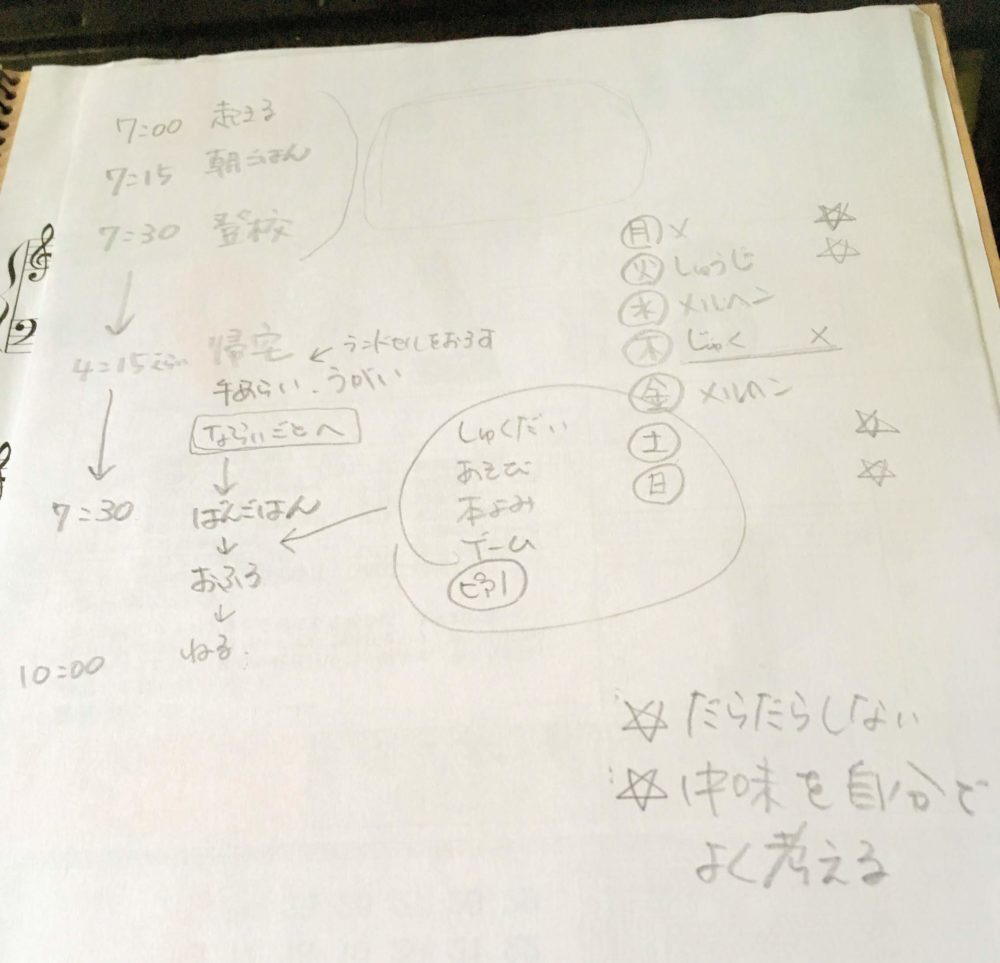 7:00 起きる
7:15 朝ごはん
7:30 登校
4:15ぐらい 帰宅 ← ランドセルをおろす
手あらい、うがい
ならいごとへ
7:30 ばんごはん
おふろ
10:00 ねる
しゅくだい
あそび
本よみ
ゲーム
ピアノ
月 × ☆
火 しゅうじ ☆
水 メルヘン
木 じゅく ×
金 メルヘン
土 ☆
日 ☆
☆ だらだらしない
☆ 中味を自分で
よく考える